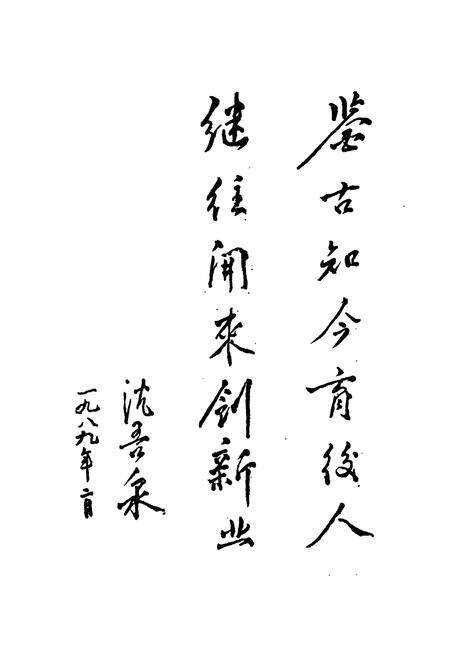 鉴古知今育後人
继往開來創新业
沈吾泉
一九八九年二月